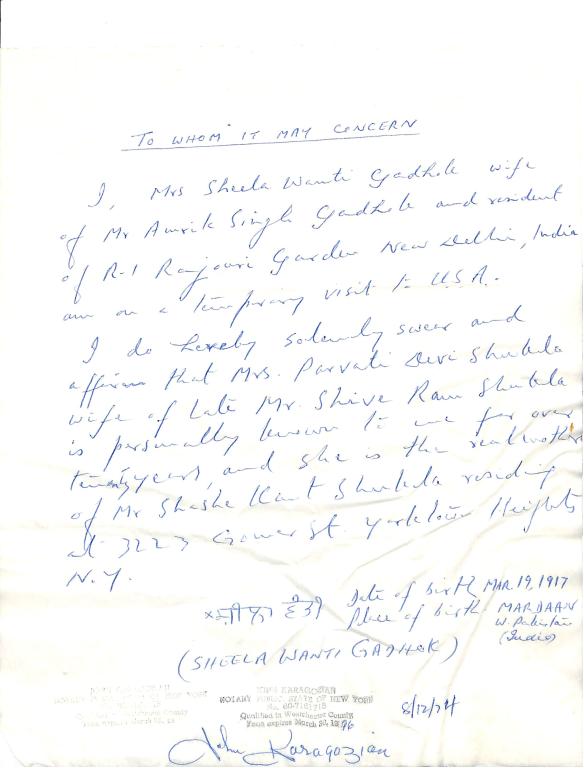 TO WHOM IT MAY CONCERN
I, Mrs Sheela Wanti Gadhok wife
of Mr Amrik Singh Gadhok and resident
of R-1 Rajouri Garden New Delhi, India
am on a temporary visit to U.S.A.
I do hereby solemnly swear and
affirm that Mrs. Parvati Devi Shukla
wife of Late Mr. Shive Ram Shukla
is personally known to me for over
twenty years, and she is the real mother
of Mr Shashe Kant Shukla residing
at 3223 Gomer St. Yorktown Heights
N.Y.
Date of birth MAR. 19, 1917
× ਸ਼ੀਲਾ ਵੰਤੀ Place of birth MARDAAN
W. Pakistan
(India)
(SHEELA WANTI GADHOK)
JOHN KARAGOZIAN
NOTARY PUBLIC, STATE OF NEW YORK
Qualified in Westchester County
Term expires March 30, 1976
8/12/74
John Karagozian